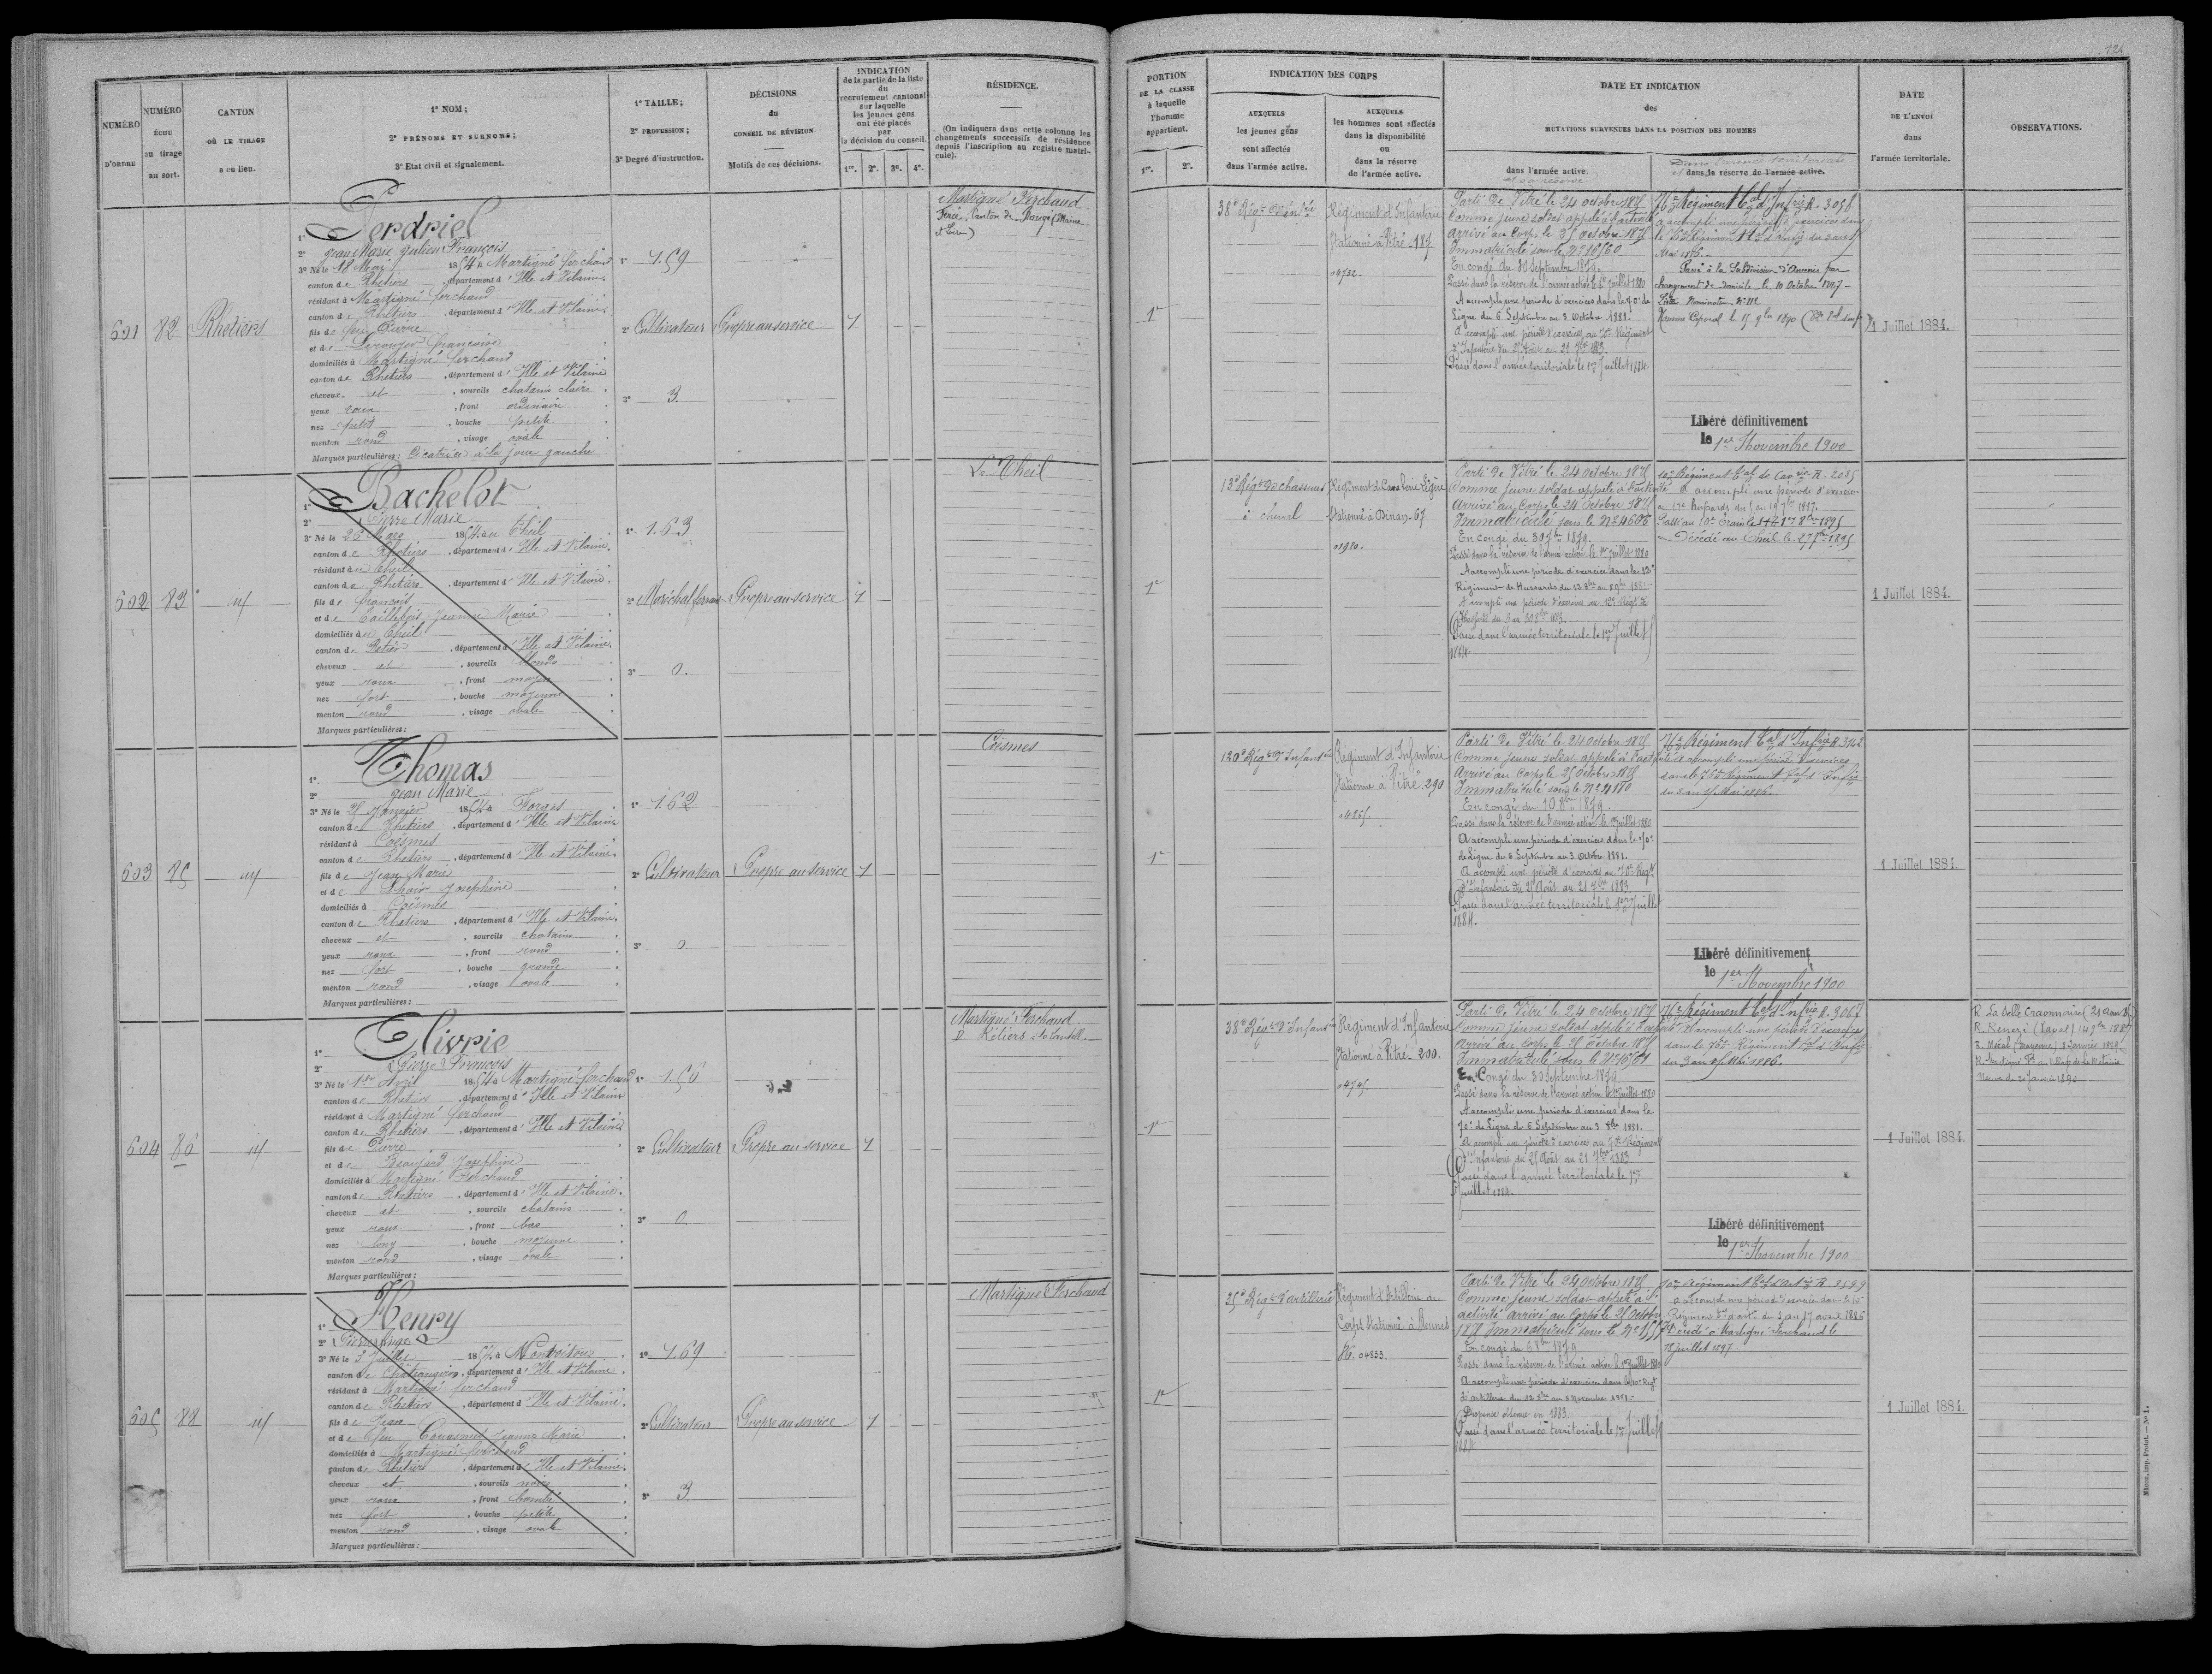 124
NUMÉRO D'ORDRE
NUMÉRO échu au tirage au sort.
CANTON OÙ LE TIRAGE a eu lieu.
1° NOM;
2° PRÉNOMS ET SURNOMS;
3° Etat civil et signalement.
1° TAILLE;
2° PROFESSION;
3° Degré d'instruction.
DÉCISIONS du CONSEIL DE RÉVISION
Motifs de ces décisions.
INDICATION de la partie de la liste du recrutement cantonal sur laquelle les jeunes gens ont été placés par la décision du conseil.
1re. 2e. 3e. 4e.
RÉSIDENCE.
(On indiquera dans cette colonne les changements successifs de résidence depuis l'inscription au registre matricule).
PORTION DE LA CLASSE à laquelle l'homme appartient.
1re. 2e.
INDICATION DES CORPS
AUXQUELS les jeunes gens sont affectés dans l'armée active.
AUXQUELS les hommes sont affectés dans la disponibilité ou dans la réserve de l'armée active.
DATE ET INDICATION des MUTATIONS SURVENUES DANS LA POSITION DES HOMMES
dans l'armée active.
et sa réserve
Dans l'armée territoriale
et dans la réserve de l'armée active.
DATE DE L'ENVOI dans l'armée territoriale.
OBSERVATIONS.
601
82
Rhetiers
1° Perdriel
2° Jean Marie Julien François
3° Né le 18 Mars 1854 à Martigné ferchaud
canton de Rhetiers, département d'Ille et Vilaine
résidant à Martigné ferchaud
canton de Rhetiers, département d'Ille et Vilaine
fils de feu Pierre
et de françoise
domiciliés à Martigné ferchaud
canton de Rhetiers, département d'Ille et Vilaine
cheveux et, sourcils chatains clairs
yeux roux, front ordinaire
nez petit, bouche petite
menton rond, visage ovale
Marques particulières : Cicatrice à la joue gauche
1° 1.59
2° Cultivateur
3° 3.
Propre au service
1
Martigné Ferchaud
Canton de Pouancé (Maine et Loire)
1e
38e Régt d'Infrie
Régiment d'Infanterie
Stationné à Vitré - 187
Parti de Vitré le 24 octobre 1875
Comme jeune soldat appelé à l'activité
Arrivé au Corps le 25 octobre 1875
Immatriculé sous le N°
En congé du 30 Septembre 1879.
Passé dans la réserve de l'armée active le 1er Juillet 1880
A accompli une période d'exercices dans le 70e de
Ligne du 6 Septembre au 3 Octobre 1881.
A accompli une période d'exercices au 70e Régiment
d'Infanterie du 25 Août au 21 7bre 1883.
Passé dans l'armée territoriale le 1er Juillet 1884.
76e Régiment tal d'Infrie R. 3056
a accompli une période d'exercices dans
le 76e Régiment tal d'Infie du 3 au 15
Mai 1886.
Passé à la Subdivision d'Ancenis par
changement de domicile le 10 Octobre 1887
Liste Nominative N° 112
Libéré définitivement
le 1er Novembre 1900
1 Juillet 1884.
602
83
id
1° Bachelot
2° Pierre Marie
3° Né le 26 Mars 1854 au Theil
canton de Rhetiers, département d'Ille et Vilaine
résidant au Theil
canton de Rhetiers, département d'Ille et Vilaine
fils de françois
et de Caillebois Jeanne Marie
domiciliés au Theil
canton de Retiers, département d'Ille et Vilaine
cheveux et, sourcils blonds
yeux roux, front moyen
nez fort, bouche moyenne
menton rond, visage ovale
Marques particulières :
1° 1.63
2° Maréchal ferrant
3° 0.
Propre au service
1
Le Theil
1e
13e Régt de chasseurs
à cheval
Régiment de Cavalerie Légère
Stationné à Dinan - 67
01980.
Parti de Vitré le 24 octobre 1875
Comme jeune soldat appelé à l'activité
Arrivé au Corps le 24 octobre 1875
Immatriculé sous le N° 4686
En congé du 30 7bre 1879.
Passé dans la réserve de l'armée active le 1er Juillet 1880
A accompli une période d'exercice dans le 12e
Régiment de Hussards
A accompli une période d'exercices au 12e Régt de
Hussards du 3 au 30 8bre 1883.
Passé dans l'armée territoriale le 1er Juillet
1884.
10e Régiment tal de Cavrie R. 2035
A accompli une période d'exercice
au 12e Hussards
Décédé au Theil le 27 1895
1 Juillet 1884.
603
85
id
1° Thomas
2° Jean Marie
3° Né le 25 Janvier 1854 à Forges
canton de Rhetiers, département d'Ille et Vilaine
résidant à Coësmes
canton de Rhetiers, département d'Ille et Vilaine
fils de Jean Marie
et de Josephine
domiciliés à Coësmes
canton de Rhetiers, département d'Ille et Vilaine
cheveux et, sourcils chatains
yeux roux, front rond
nez fort, bouche grande
menton rond, visage ovale
Marques particulières :
1° 1.62
2° Cultivateur
3° 0
Propre au service
1
Coësmes
1e
120e Régt d'Infantrie
Régiment d'Infanterie
Stationné à Vitré - 290
Parti de Vitré le 24 octobre 1875
Comme jeune soldat appelé à l'activité
Arrivé au Corps le 25 octobre 1875
Immatriculé sous le N° 4180
En congé du 10 8bre 1879.
Passé dans la réserve de l'armée active le 1er Juillet 1880
A accompli une période d'exercices dans le 70e
de Ligne du 6 Septembre au 3 Octobre 1881.
A accompli une période d'exercices au 70e Régt
d'Infanterie du 25 Août au 21 7bre 1883.
Passé dans l'armée territoriale le 1er Juillet
1884.
76e Régiment tal d'Infrie R. 3142
A accompli une période d'exercices
dans le 76e Régiment tal d'Infie
du 3 au 15 Mai 1886.
Libéré définitivement
le 1er Novembre 1900
1 Juillet 1884.
604
86
id
1° Olivrie
2° Pierre François
3° Né le 1er Avril 1854 à Martigné ferchaud
canton de Rhetiers, département d'Ille et Vilaine
résidant à Martigné ferchaud
canton de Rhetiers, département d'Ille et Vilaine
fils de Pierre
et de Beaujard Josephine
domiciliés à Martigné Ferchaud
canton de Rhetiers, département d'Ille et Vilaine
cheveux et, sourcils chatains
yeux roux, front bas
nez long, bouche moyenne
menton rond, visage ovale
Marques particulières :
1° 1.56
2° Cultivateur
3° 0.
Propre au service
1
Martigné Ferchaud
1e
38e Régt d'Infantrie
Régiment d'Infanterie
Stationné à Vitré - 200.
Parti de Vitré le 24 octobre 1875
Comme jeune soldat appelé à l'activité
Arrivé au Corps le 25 octobre 1875
Immatriculé sous le N°
En Congé du 30 Septembre 1879
Passé dans la réserve de l'armée active le 1er Juillet 1880
A accompli une période d'exercices dans le
70e de Ligne du 6 Septembre au 3 8bre 1881.
A accompli une période d'exercices au 70e Régiment
d'Infanterie du 25 Août au 21 7bre 1883.
Passé dans l'armée territoriale le 1er
Juillet 1884.
76e Régiment tal d'Infrie R. 3067
A accompli une période d'exercices
dans le 76e Régiment tal d'Infie
du 3 au 15 Mai 1886.
Libéré définitivement
le 1er Novembre 1900
1 Juillet 1884.
R. La Selle Craonnaise
R. Renazé (Laval)
R. Méral (Mayenne) 2 Janvier 1889
R. Martigné F. au Village de la Métairie
Neuve du 20 Janvier 1890
605
88
id
1° Henry
2° Pierre Ange
3° Né le 3 Juillet 1854 à
canton de Châteaugiron, département d'Ille et Vilaine
résidant à Martigné ferchaud
canton de Rhetiers, département d'Ille et Vilaine
fils de Jean
et de feu Jeanne Marie
domiciliés à Martigné ferchaud
canton de Rhetiers, département d'Ille et Vilaine
cheveux et, sourcils noirs
yeux roux, front bombé
nez fort, bouche petite
menton rond, visage ovale
Marques particulières :
1° 1.69
2° Cultivateur
3° 3.
Propre au service
1
Martigné Ferchaud
1e
35e Régt d'artillerie
Régiment d'Artillerie de
Corps Stationné à Rennes
04833.
Parti de Vitré le 24 octobre 1875
Comme jeune soldat appelé à l'
activité arrivé au Corps le 25 octobre
1875 Immatriculé sous le N°
En congé du 6 8bre 1879
Passé dans la réserve de l'armée active le 1er Juillet 1880
A accompli une période d'exercice dans le 10e Régt
d'artillerie
Dispense obtenue en 1883.
Passé dans l'armée territoriale le 1er Juillet
1884.
10e Régiment tal d'artie R. 3599
a accompli une période d'exercices dans le 10e
Régiment tal d'artie du 3 au 17 avril 1886
Décédé à Martigné Ferchaud le
Juillet 1897
1 Juillet 1884.
Mâcon, imp. Protat. — N° 1.